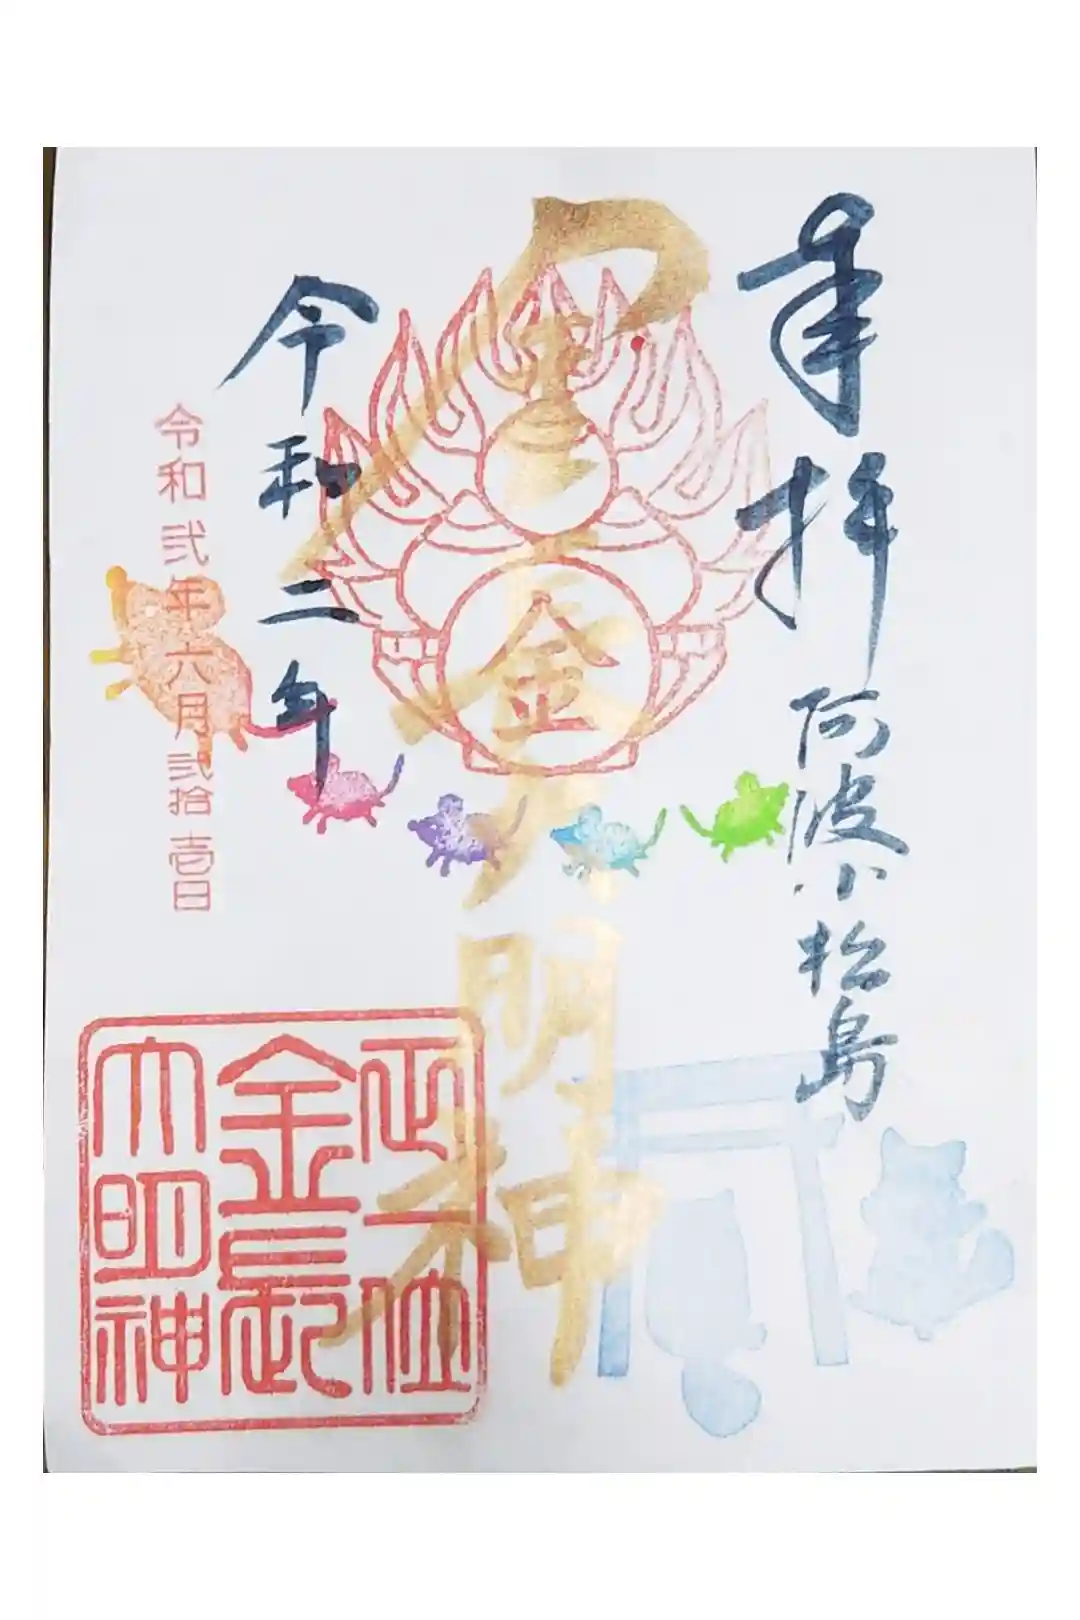 奉拝
阿波小松島
金
大明神
正一位
金長
大明神
令和二年
令和弐年六月弐拾壱日